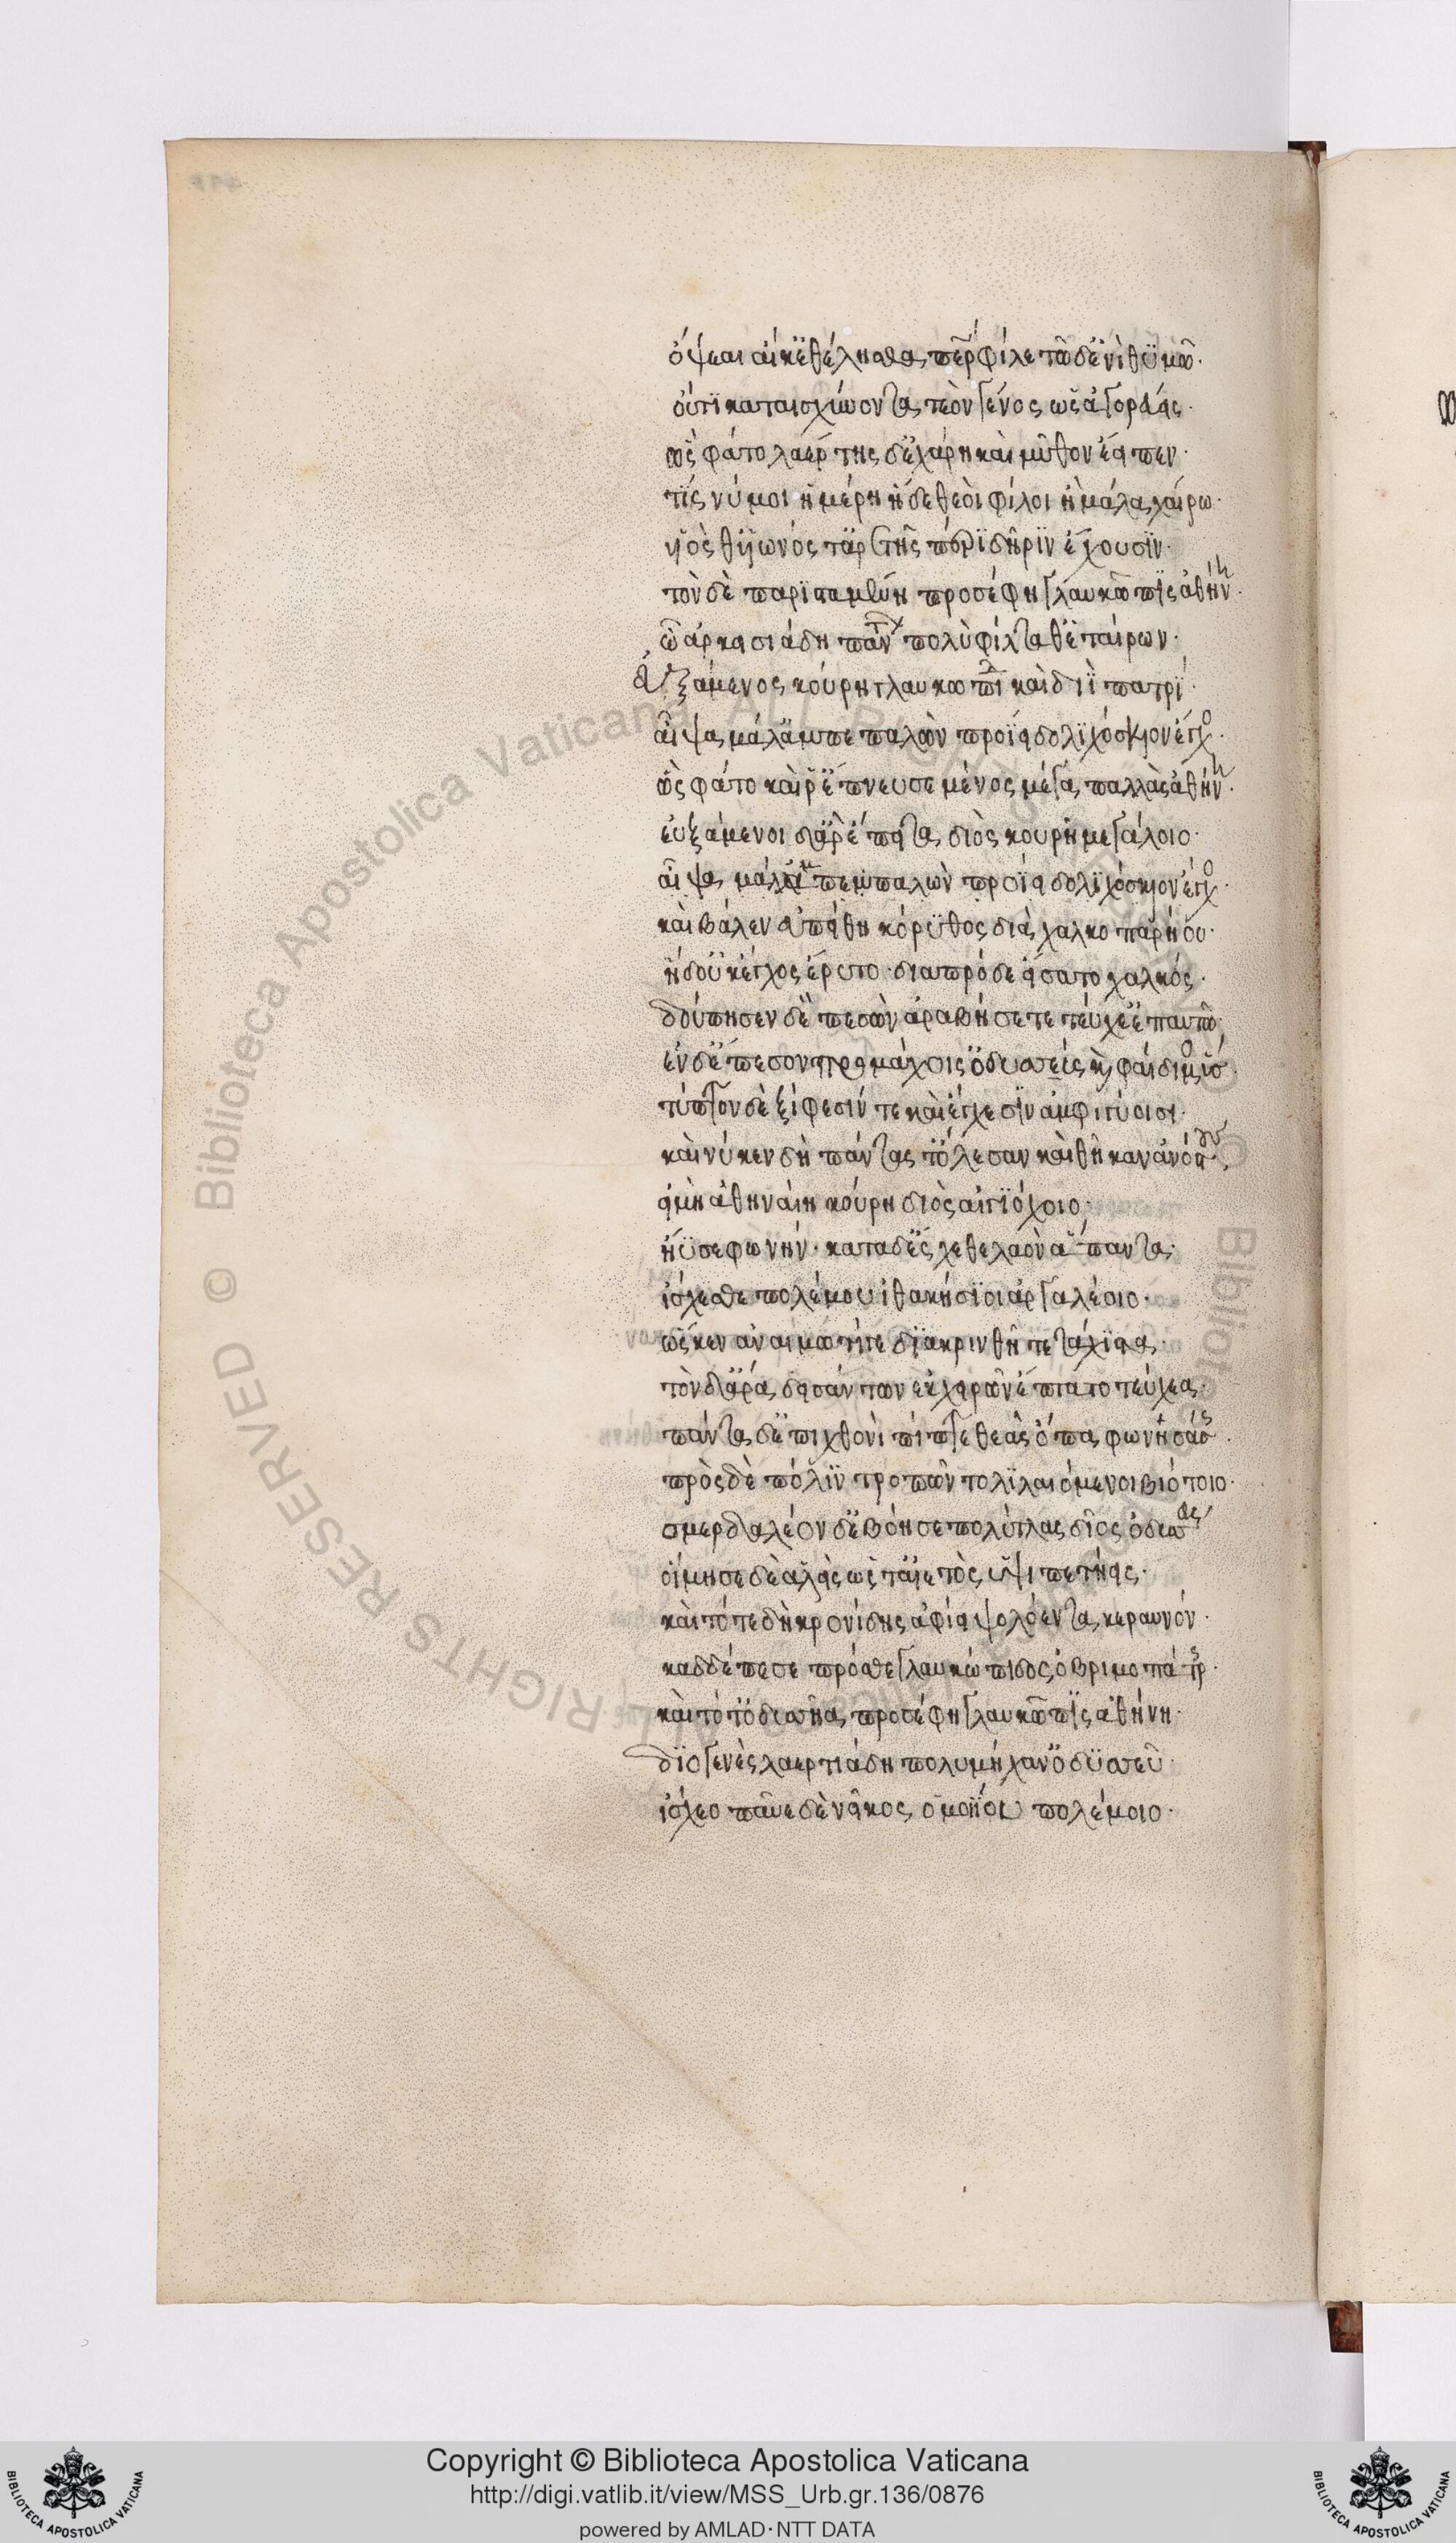 ὄψεαι αἴκ' ἐθέλησθα πάτερ φίλε τῶδ' ἐνὶ θυμῶ·
οὔτι καταισχύνοντα τεὸν γένος ὡς ἀγορεύεις·
ὣς φάτο λαέρτης δ' ἐχάρη καὶ μῦθον ἔειπεν·
τίς νύ μοι ἡμέρη ἥδε θεοὶ φίλοι ἦ μάλα χαίρω·
υἱός θ' υἱωνός τ' ἀρετῆς πέρι δῆριν ἔχουσιν·
τὸν δὲ παρισταμένη προσέφη γλαυκῶπις ἀθήνη·
ὦ ἀρκεισιάδη πάντων πολὺ φίλταθ' ἑταίρων·
εὐξάμενος κούρη γλαυκώπιδι καὶ διὶ πατρί·
αἶψα μάλ' ἀμπεπαλὼν προΐει δολιχόσκιον ἔγχος·
ὣς φάτο καί ῥ' ἔπνευσε μένος μέγα παλλὰς ἀθήνη·
εὐξάμενοι δ' ἄρ' ἔπειτα διὸς κούρη μεγάλοιο·
αἶψα μάλ' ἀμπεπαλὼν προΐει δολιχόσκιον ἔγχος·
καὶ βάλεν εὐπείθη κόρυθος διὰ χαλκοπαρήου·
ἡ δ' οὐκ ἔγχος ἔρυτο· διαπρὸ δὲ εἴσατο χαλκός·
δούπησεν δὲ πεσὼν ἀράβησε δὲ τεύχε' ἐπ' αυτῶ·
ἐν δ' ἔπεσον προμάχοις ὀδυσεὺς καὶ φαίδιμος υἱός·
τύπτον δὲ ξίφεσίν τε καὶ ἔγχεσιν ἀμφιγύοισι·
καὶ νύ κεν δὴ πάντας τ' ὄλεσαν καὶ θῆκαν ἀνόστους·
εἰ μὴ ἀθηναίη κούρη διὸς αἰγιόχοιο·
ἤϋσε φωνήν· κατὰ δ' ἔσχεθε λαὸν ἅπαντα·
ἴσχεσθε πολέμου ἰθακήσιοι ἀργαλέοιο·
ὥς κεν ἀναιμωτί τε διακρινθῆτε τάχιστα·
τῶν δ' ἄρα δεισάντων ἐκ χειρῶν ἔπτατο τεύχεα·
πάντα δ' ἐπι χθονὶ πίπτε θεᾶς ὄπα φωνησάσης·
πρὸς δὲ πόλιν τροπῶντο λιλαιόμενοι βιότοιο·
σμερδαλέον δ' ἐβόησε πολύτλας δῖος ὀδυσσεύς
οἴμησε δὲ ἀλεὶς ὥς τ' αἰετὸς ὑψιπετήεις·
καὶ τότε δὴ κρονίδης ἀφίει ψολόεντα κεραυνόν·
καδδ' έπεσε πρόσθε γλαυκώπιδος ὀβριμοπάτρης·
καὶ τότ' ὀδυσσῆα προσέφη γλαυκῶπις ἀθήνη·
διογενὲς λαερτιάδη πολυμήχαν' ὀδυσσεῦ·
ἴσχεο παῦε δὲ νεῖκος ὁμοιΐου πολέμοιο·
Copyright © Biblioteca Apostolica Vaticana
http://digi.vatlib.it/view/MSS_Urb.gr.136/0876
powered by AMLAD·NTT DATA